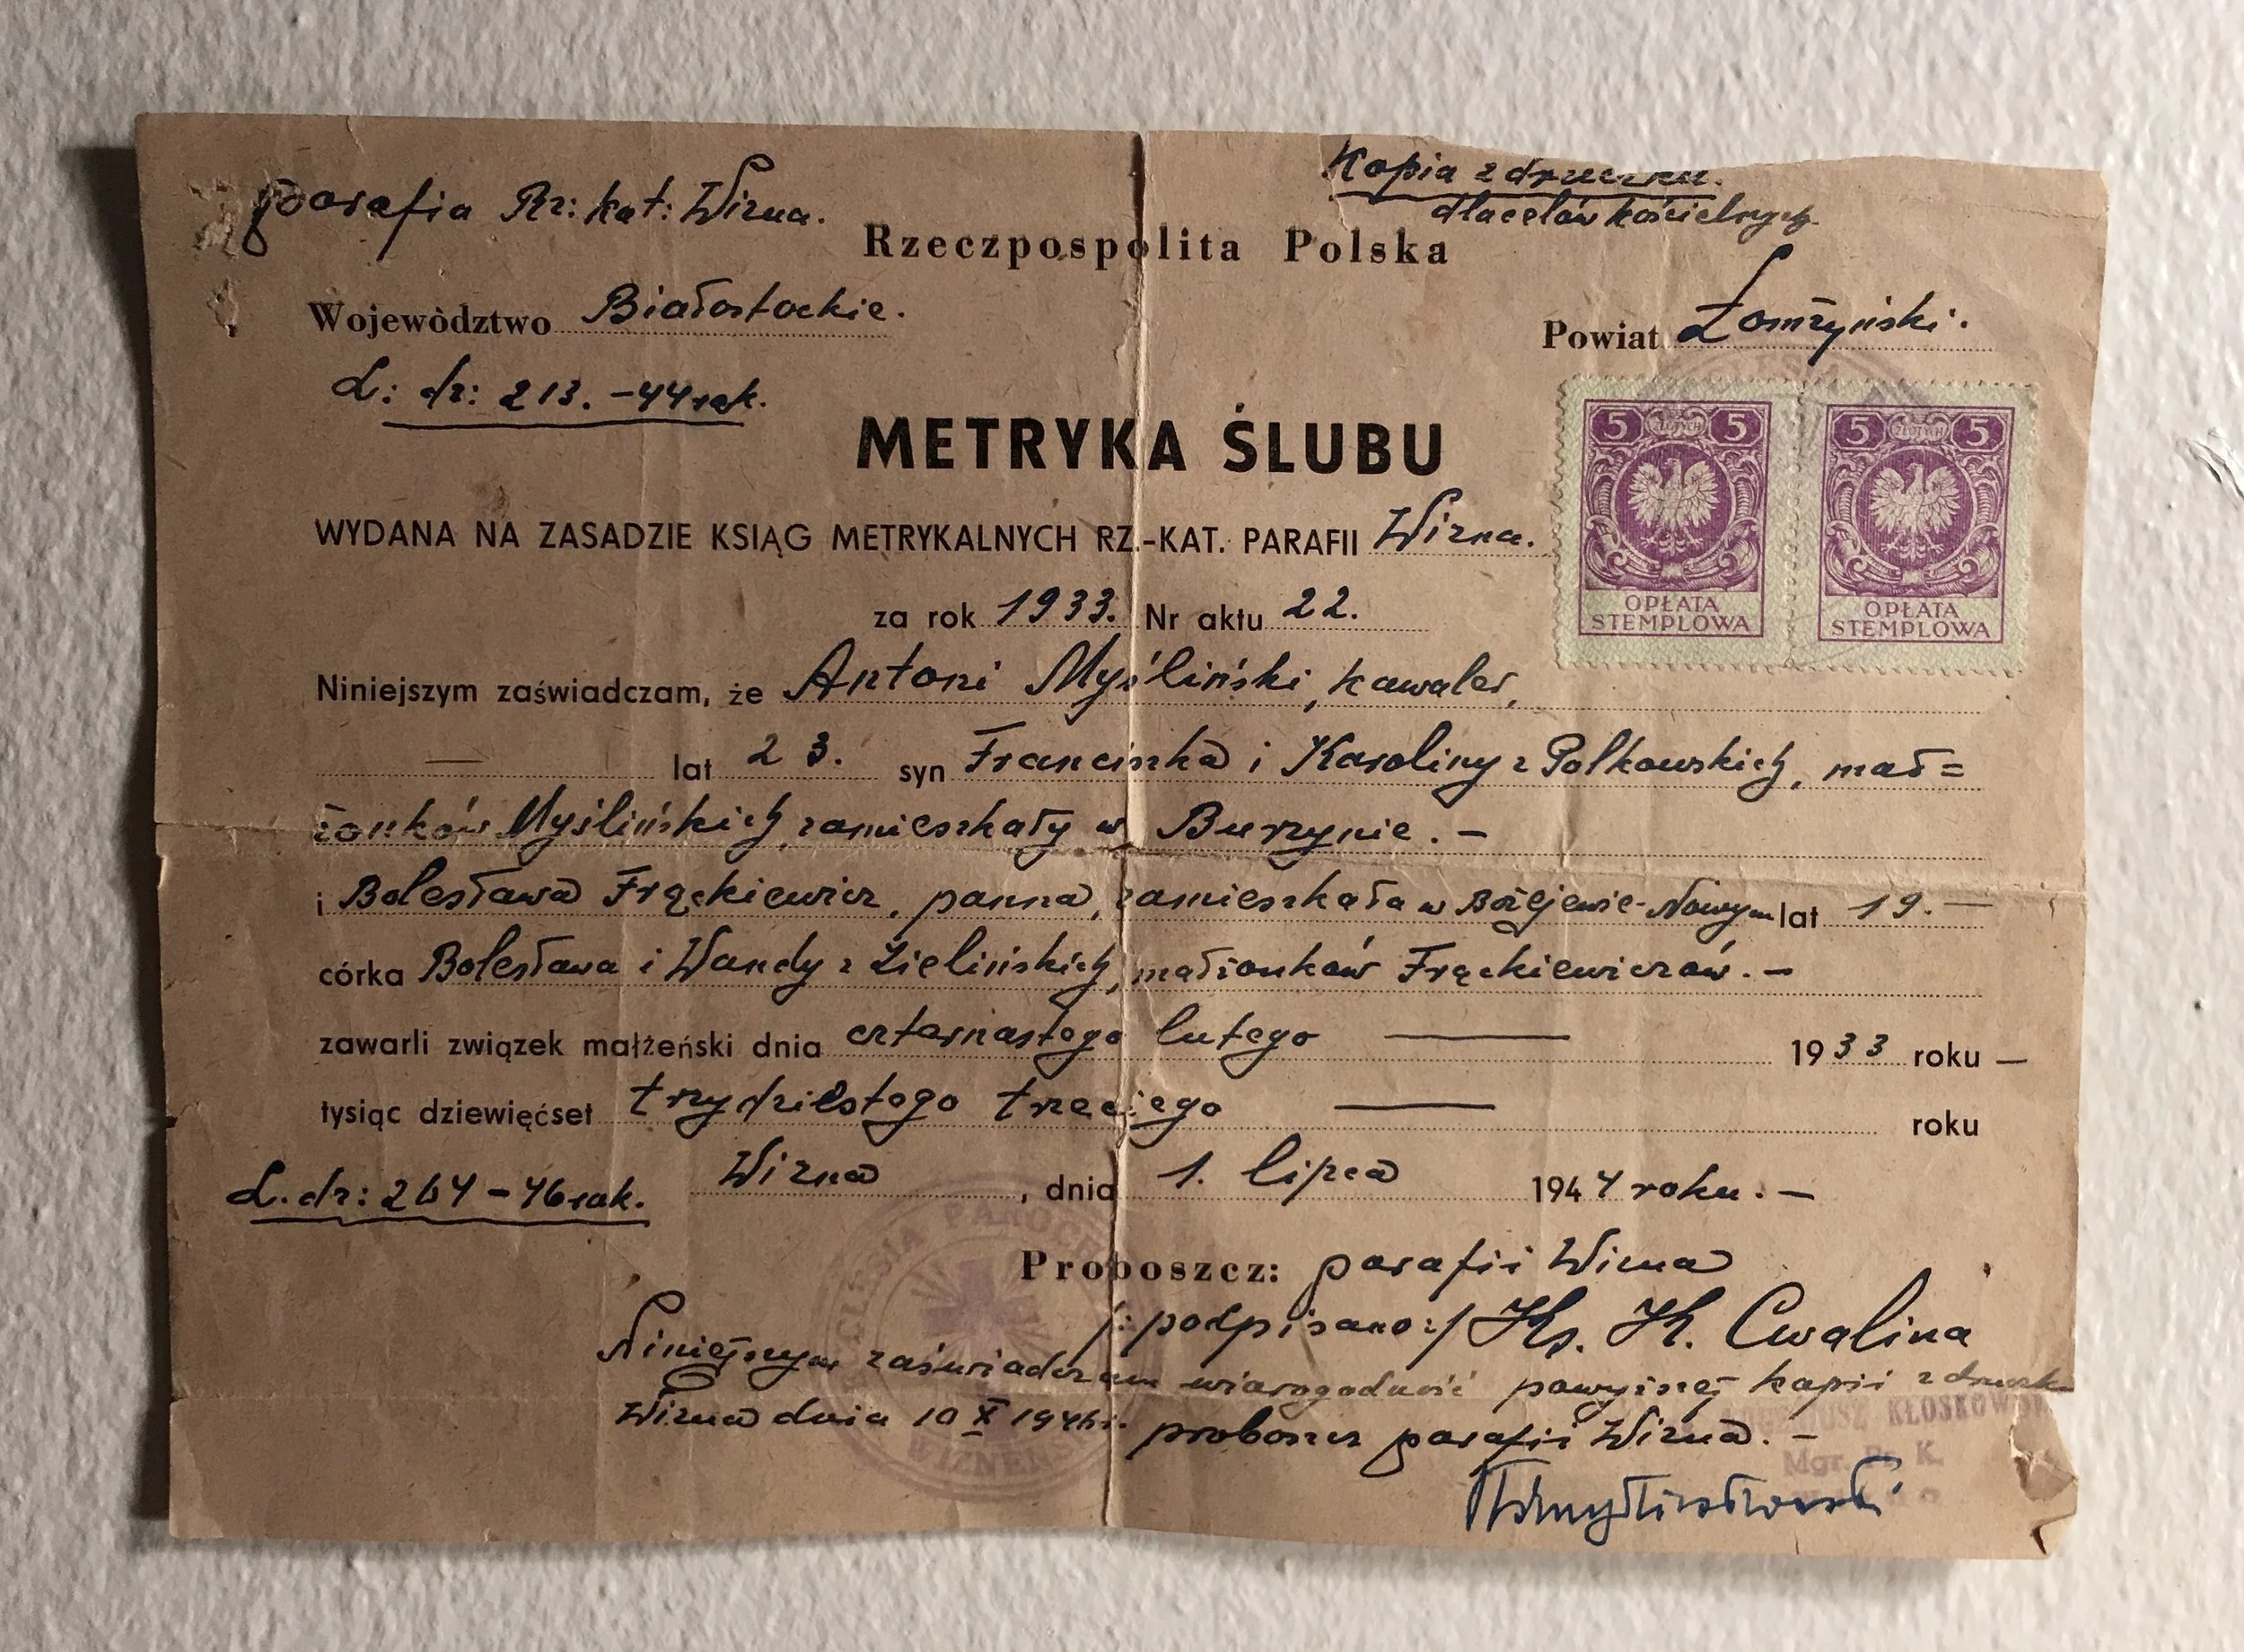 Parafia Rz: kat: Wizna.
Kopia z druczku.
dla celów kościelnych.
Rzeczpospolita Polska
Województwo Białostockie.
Powiat Łomżyński.
L: dz: 213. -44 rok.
5 ZŁOTYCH 5
5 ZŁOTYCH 5
METRYKA ŚLUBU
WYDANA NA ZASADZIE KSIĄG METRYKALNYCH RZ.-KAT. PARAFII Wizna.
OPŁATA STEMPLOWA
OPŁATA STEMPLOWA
za rok 1933. Nr aktu 22.
Niniejszym zaświadczam, że Antoni Myśliński, kawaler,
— lat 23. syn Franciszka i Karoliny z Polkowskich, mał=
żonków Myślińskich, zamieszkały w Burzynie. —
i Bolesława Frąckiewicz, panna, zamieszkała w Bożejewie-Nowym lat 19. —
córka Bolesława i Wandy z Zielińskich, małżonków Frąckiewiczów. —
zawarli związek małżeński dnia czternastego lutego — 1933 roku —
tysiąc dziewięćset trzydziestego trzeciego — roku
L. dz: 264 - 46 rok.
Wizna, dnia 1. lipca 1944 roku. —
Proboszcz: parafii Wizna
/: podpisano :/ Ks. K. Cwalina
Niniejszym zaświadczam wiarogodność powyższej kopii z druczku
Wizna dnia 10 X 1946 r. proboszcz parafii Wizna. —
KŁOSKOWSKI
Mgr.